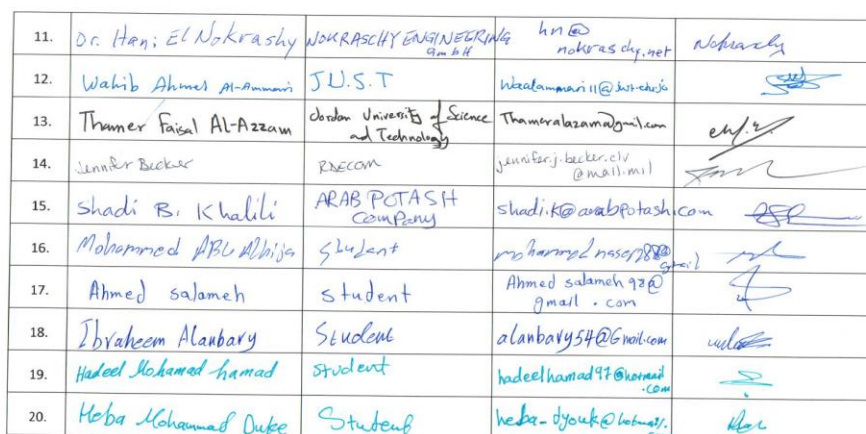 11. Dr. Hani El Nokrashy NOKRASCHY ENGINEERING GmbH hn@nokraschy.net Nokrashy
12. Wahib Ahmed Al-Ammari J.U.S.T
13. Thamer Faisal AL-Azzam Jordan University of Science and Technology Thameralazam@gmail.com
14. Jennifer Becker RDECOM jennifer.j.becker.civ@mail.mil
15. Shadi B. Khalili ARAB POTASH Company shadi.k@arabpotash.com
16. Mohammed ABU Alhija Student
17. Ahmed salameh student Ahmed salameh98@gmail.com
18. Ibraheem Alanbary Student alanbary54@Gmail.com
19. Hadeel Mohamad hamad student hadeelhamad97@hotmail.com
20. Heba Mohammad Duke Student heba-dyouk@hotmail.